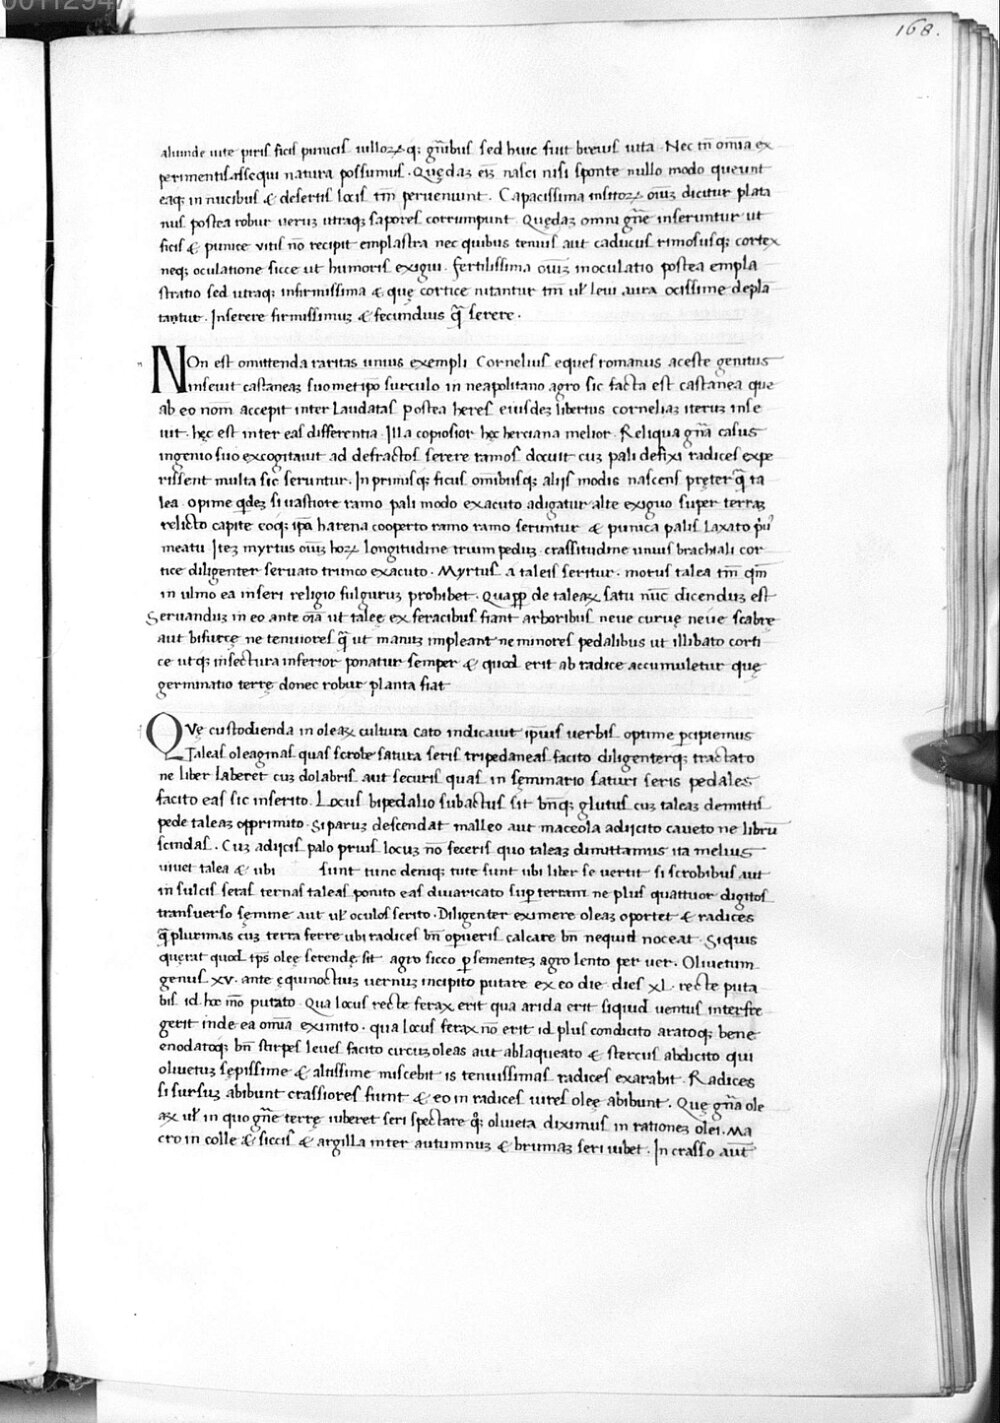 168.
aliunde uite piris ficis punicis ulloꝝq; gn̄ibus sed huic fuit breuis uita. Nec tn̄ om̄ia ex
perimentis assequi natura possumus. Quędaz eīz nasci nisi sponte nullo modo queunt
eaq; in nucibus & desertis locis tm̄ perueniunt. Capacissima insitoꝝ oīuz dicitur plata
nus postea robur ueruz utraq; sapores corrumpunt. Quędaz omni gn̄e inseruntur ut
ficis & punice vitis nō recipit emplastra nec quibus tenuis aut caducus rimosusq; cortex
neq; oculatione sicce ut humoris exigui. fertilissima oīuz inoculatio postea empla
stratio sed utraq; infirmissima & quę cortice nitantur tm̄ ul̄ leui aura ocissime deplā
tantur. Inserere firmissimuz & fecundius q̄ serere.
NOn est omittenda raritas unius exempli Cornelius eques romanus aceste genitus
inseuit castaneaz suomet ip̄o surculo in neapolitano agro sic facta est castanea que
ab eo nom̄ accepit inter Laudatas postea heres eiusdez libertus corneliaz iteruz inse
uit. hęc est inter eas differentia. Illa copiosior hęc herciana melior. Reliqua gn̄a casus
ingenio suo excogitauit ad defractos serere ramos docuit cuz pali defixi radices expe
rissent multa sic seruntur. In primisq; ficus om̄ibusq; alijs modis nascens pręter q̄ ta
lea. opime q̄dez si uastiore ramo pali modo exacuto adigatur alte exiguo super terraz
relicto capite eoq; ip̄a harena cooperto ramo ramo seruntur & punica palis Laxato p̄iꝰ
meatu Itez myrtus oīuz hoꝝ longitudine trium peduz crassitudine unius brachiali cor
tice diligenter seruato trunco exacuto. Myrtus a taleis seritur. morus talea tm̄ qm̄
in ulmo ea inseri religio fulguruz prohibet. Quapp̄ de taleaꝝ satu nūc dicenduz est
Seruanduz in eo ante oīa ut talee ex feracibus fiant arboribus neue curuę neue scabrę
aut bifurcę ne tenuiores q̄ ut manuz impleant ne minores pedalibus ut illibato corti
ce utq; insectura inferior ponatur semper & quod erit ab radice accumuletur quę
germinatio terrę donec robur planta fiat
QVę custodienda in oleaꝝ cultura cato indicauit ip̄ius uerbis optime p̄cipiemus
Taleas oleaginas quas scrobe satura seris tripedaneas facito diligenterq; tractato
ne liber laberet cuz dolabris aut securis quas in sęmmario saturi seris pedales
facito eas sic inserito. Locus bipedalio subactus sit bn̄q; glutus cuz taleaz demittis
pede taleaz opprimito. si paruz descendat malleo aut maceola adijcito caueto ne librū
scindas. Cuz adijcis palo prius locuz nō feceris quo taleaz dimittamus ita melius
uiuet talea & ubi sunt tunc deniq; tute sunt ubi liber se uertit si scrobibus aut
in sulcis setas ternas taleas ponito eas diuaricato sup̄ terram ne plus quattuor digitos
transuerso sęmine aut ul̄ oculos serito. Diligenter eximere oleaz oportet & radices
q̄ plurimas cuz terra ferre ubi radices bn̄ opueris calcare bn̄ nequid noceat. Siquis
quęrat quod tp̄s olee serendę sit agro sicco p̄ sementez agro lento per uer. Oliuetum
genus xv. ante ęquinoctiuz uernuz incipito putare ex eo die dies xL. recte puta
bis id hoc mō putato. Qua locus recte ferax erit qua arida erit siquid uentus interfre
gerit inde ea om̄ia eximito. qua locus ferax nō erit id plus condicito aratoq; bene
enodatoq; bn̄ stirpes leues facito circuz oleas aut ablaqueato & stercus abdicito qui
oliuetuz sępissime & altissime miscebit is tenuissimas radices exarabit. Radices
si sursuz abibunt crassiores fiunt & eo in radices uires oleę abibunt. Quę gn̄a ole
aꝝ ul̄ in quo gn̄e terrę iuberet seri spectare q̄; oliueta diximus in rationez olei. Ma
cro in colle & siccis & argilla inter autumnuz & brumaz seri iubet. In crasso aut̄